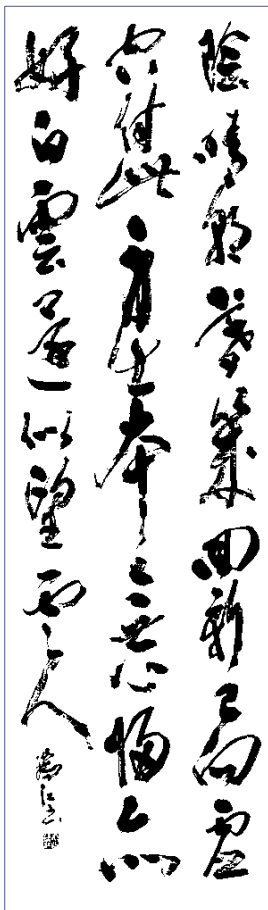 陰晴朝暮幾回新已向虛
空付此身出本無心歸亦
好白雲還似望雲人